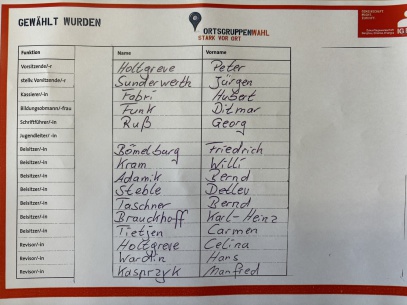 GEWÄHLT WURDEN
ORTSGRUPPENWAHL
STARK VOR ORT
Funktion Name Vorname
Vorsitzende/-r Holtgreve Peter
stellv. Vorsitzende/-r Sunderwerth Jürgen
Kassierer/-in Fabri Hubert
Bildungsobmann/-frau Funk Ditmar
Schriftführer/-in Ruß Georg
Jugendleiter/-in
Beisitzer/-in Bömelburg Friedrich
Beisitzer/-in Kram Willi
Beisitzer/-in Adamik Bernd
Beisitzer/-in Steble Detlev
Beisitzer/-in Taschner Bernd
Beisitzer/-in Brauckhoff Karl-Heinz
Beisitzer/-in Tietjen Carmen
Revisor/-in Holtgreve Celina
Revisor/-in Hans
Revisor/-in Kasprzyk Manfred